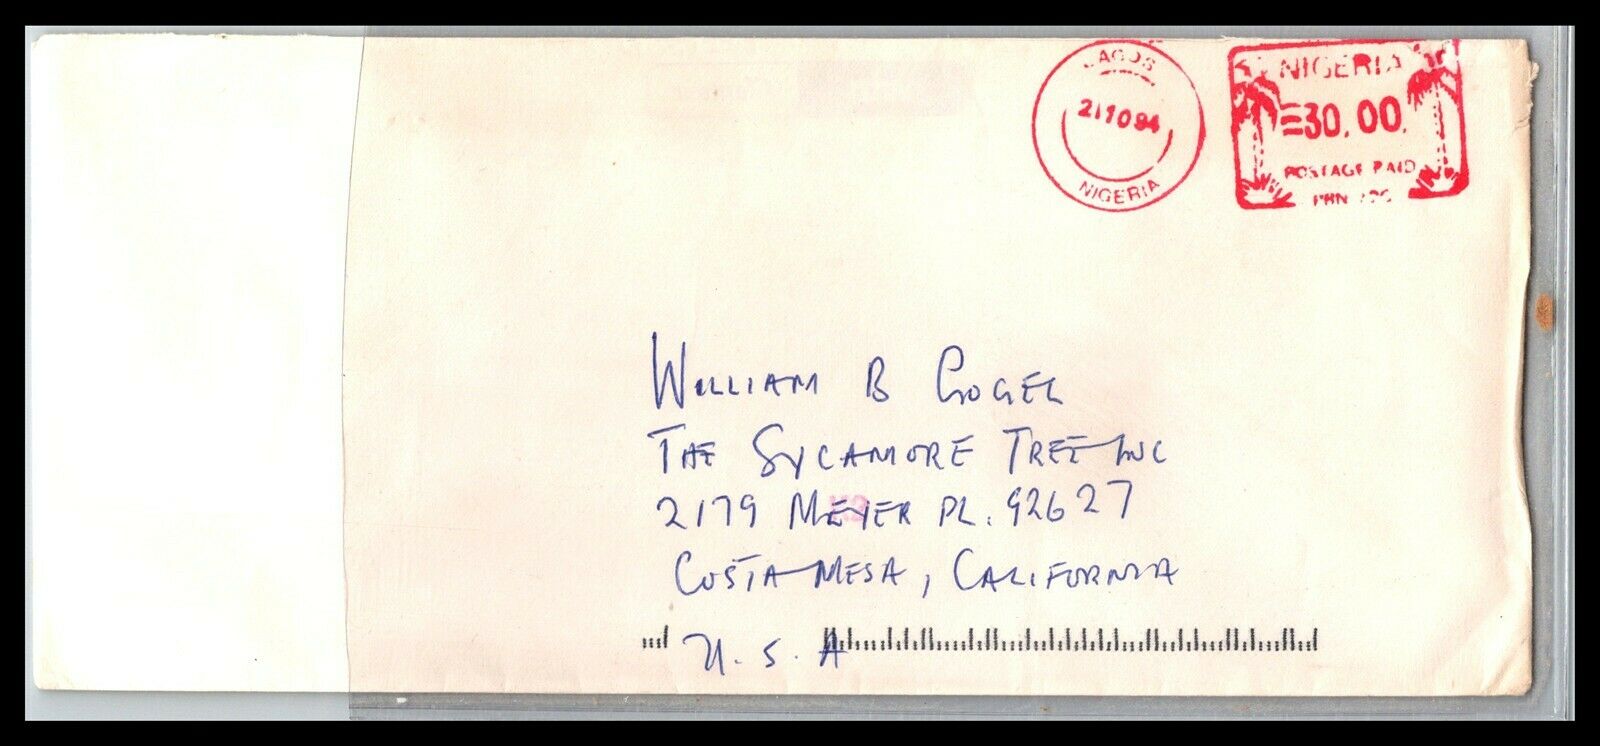 LAGOS
211094
NIGERIA
NIGERIA
=30.00
POSTAGE PAID
PBN
WILLIAM B GOGEL
THE SYCAMORE TREE INC
2179 MEYER PL. 92627
COSTA MESA, CALIFORNIA
U.S.A